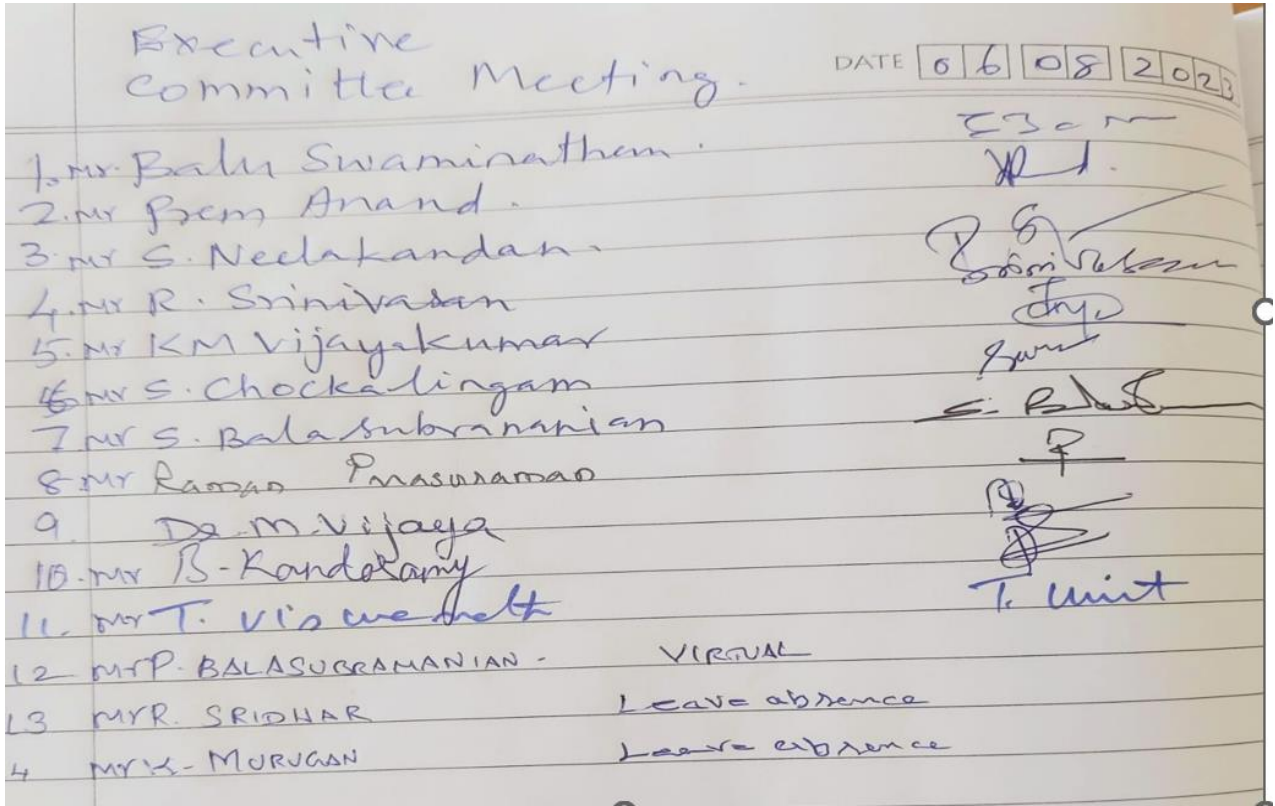 Executive
Committee Meeting.
DATE 06 08 2023
1. Mr. Balu Swaminathan.
2. Mr Prem Anand.
3. Mr S. Neelakandan.
4. Mr R. Srinivasan
5. Mr KM Vijayakumar
6 Mr S. Chockalingam
7 Mr S. Balasubramanian
8 Mr Raman Parasuraman
9. Dr. M. Vijaya
10. Mr B. Kandasamy
11. Mr T. Viswanath
12 Mr P. BALASUBRAMANIAN - VIRTUAL
13 Mr R. SRIDHAR Leave absence
4 Mr K. MURUGAN Leave absence